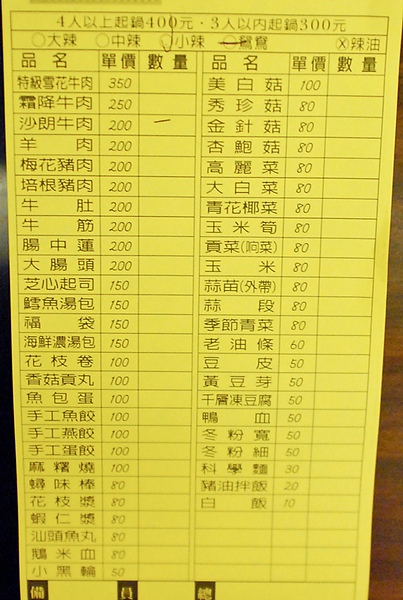 4人以上起鍋400元·3人以內起鍋300元
○大辣 ○中辣 ○小辣 ○鴛鴦 ⓧ辣油
品名 單價 數量 品名 單價 數量
特級雪花牛肉 350 美白菇 100
霜降牛肉 250 秀珍菇 80
沙朗牛肉 200 一 金針菇 80
羊肉 200 杏鮑菇 80
梅花豬肉 200 高麗菜 80
培根豬肉 200 大白菜 80
牛肚 200 青花椰菜 80
牛筋 200 玉米筍 80
腸中蓮 200 貢菜(响菜) 80
大腸頭 200 玉米 80
芝心起司 150 蒜苗(外帶) 80
鱈魚湯包 150 蒜段 80
福袋 150 季節青菜 80
海鮮濃湯包 150 老油條 60
花枝卷 100 豆皮 50
香菇貢丸 100 黃豆芽 50
魚包蛋 100 千層凍豆腐 50
手工魚餃 100 鴨血 50
手工燕餃 100 冬粉寬 50
手工蛋餃 100 冬粉細 50
麻糬燒 100 科學麵 30
蟳味棒 80 豬油拌飯 20
花枝漿 80 白飯 10
蝦仁漿 80
汕頭魚丸 80
鵝米血 80
小黑輪 50
備 員 總